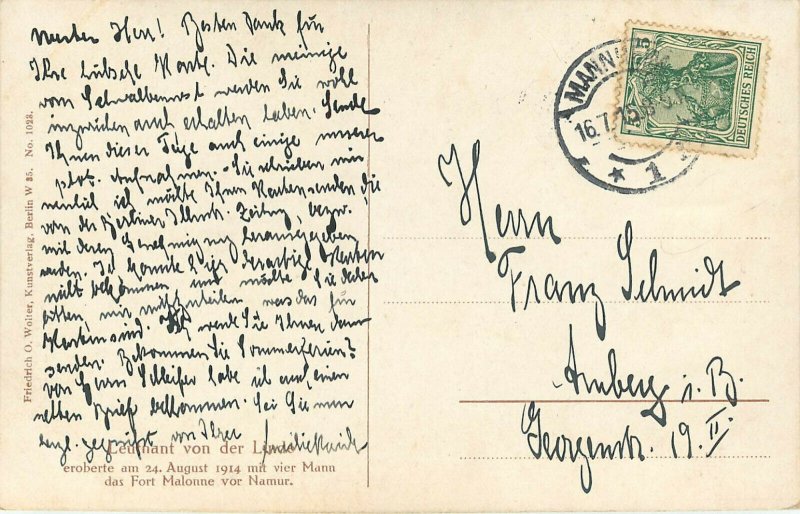 Werter Herr! Besten Dank für
Ihre hübsche Karte. Die meinige
vom Schwalbennest werden Sie wohl
inzwischen auch erhalten haben. Sende
Ihnen dieser Tage auch einige unserer
phot. Aufnahmen. Sie schrieben mir
neulich ich möchte Ihnen Karten senden die
von der Berliner Illustr. Zeitung, bezw.
mit deren Genehmigung herausgegeben
werden. Ich konnte hier derartige Karten
nicht bekommen und möchte Sie daher
bitten, mir mitzuteilen was das für
Karten sind. Ich werde Sie Ihnen dann
senden. Bekommen Sie Sommerferien?
von Herrn Schleifer habe ich auch einen
netten Brief bekommen. Sei Sie nun
herzl. gegrüßt von Ihrer
Leutnant von der Linde
eroberte am 24. August 1914 mit vier Mann
das Fort Malonne vor Namur.
Friedrich O. Wolter, Kunstverlag, Berlin W 35. No. 1023.
MANNH
16.7.
1
5
5
DEUTSCHES REICH
Herrn
Franz Schmidt
Amberg i. B.
Georgenstr. 19 II.